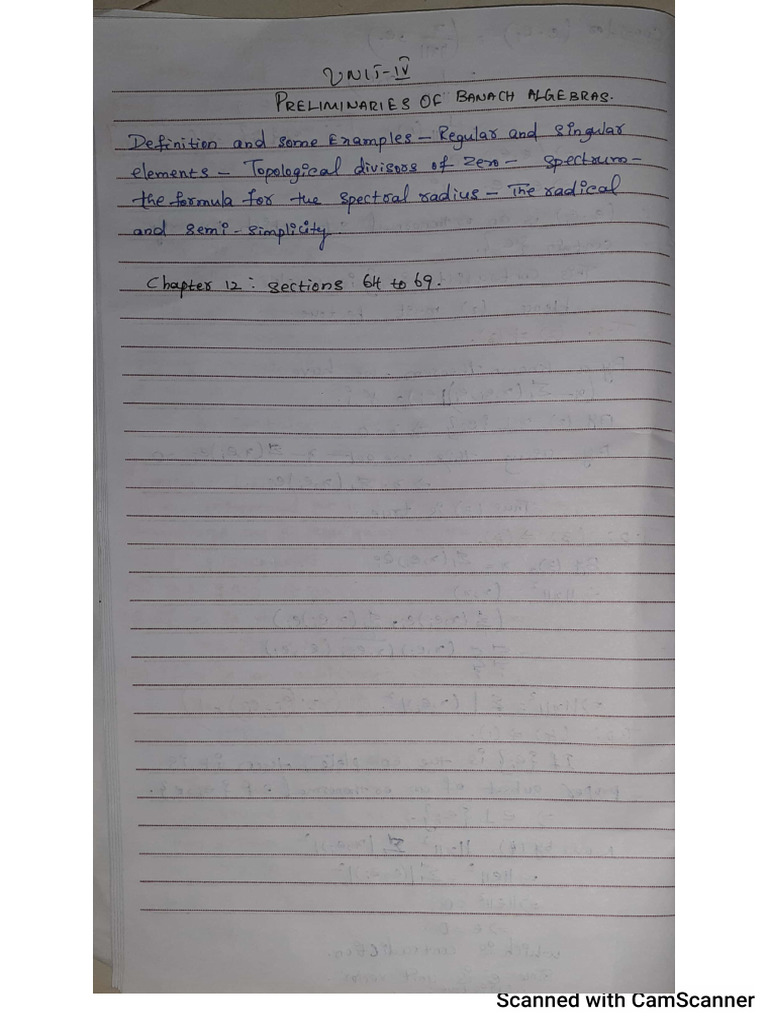 UNIT-IV
PRELIMINARIES OF BANACH ALGEBRAS.
Definition and some Examples – Regular and Singular
elements – Topological divisors of zero – spectrum –
the formula for the spectral radius – The radical
and semi-simplicity.
Chapter 12: sections 64 to 69.
Scanned with CamScanner